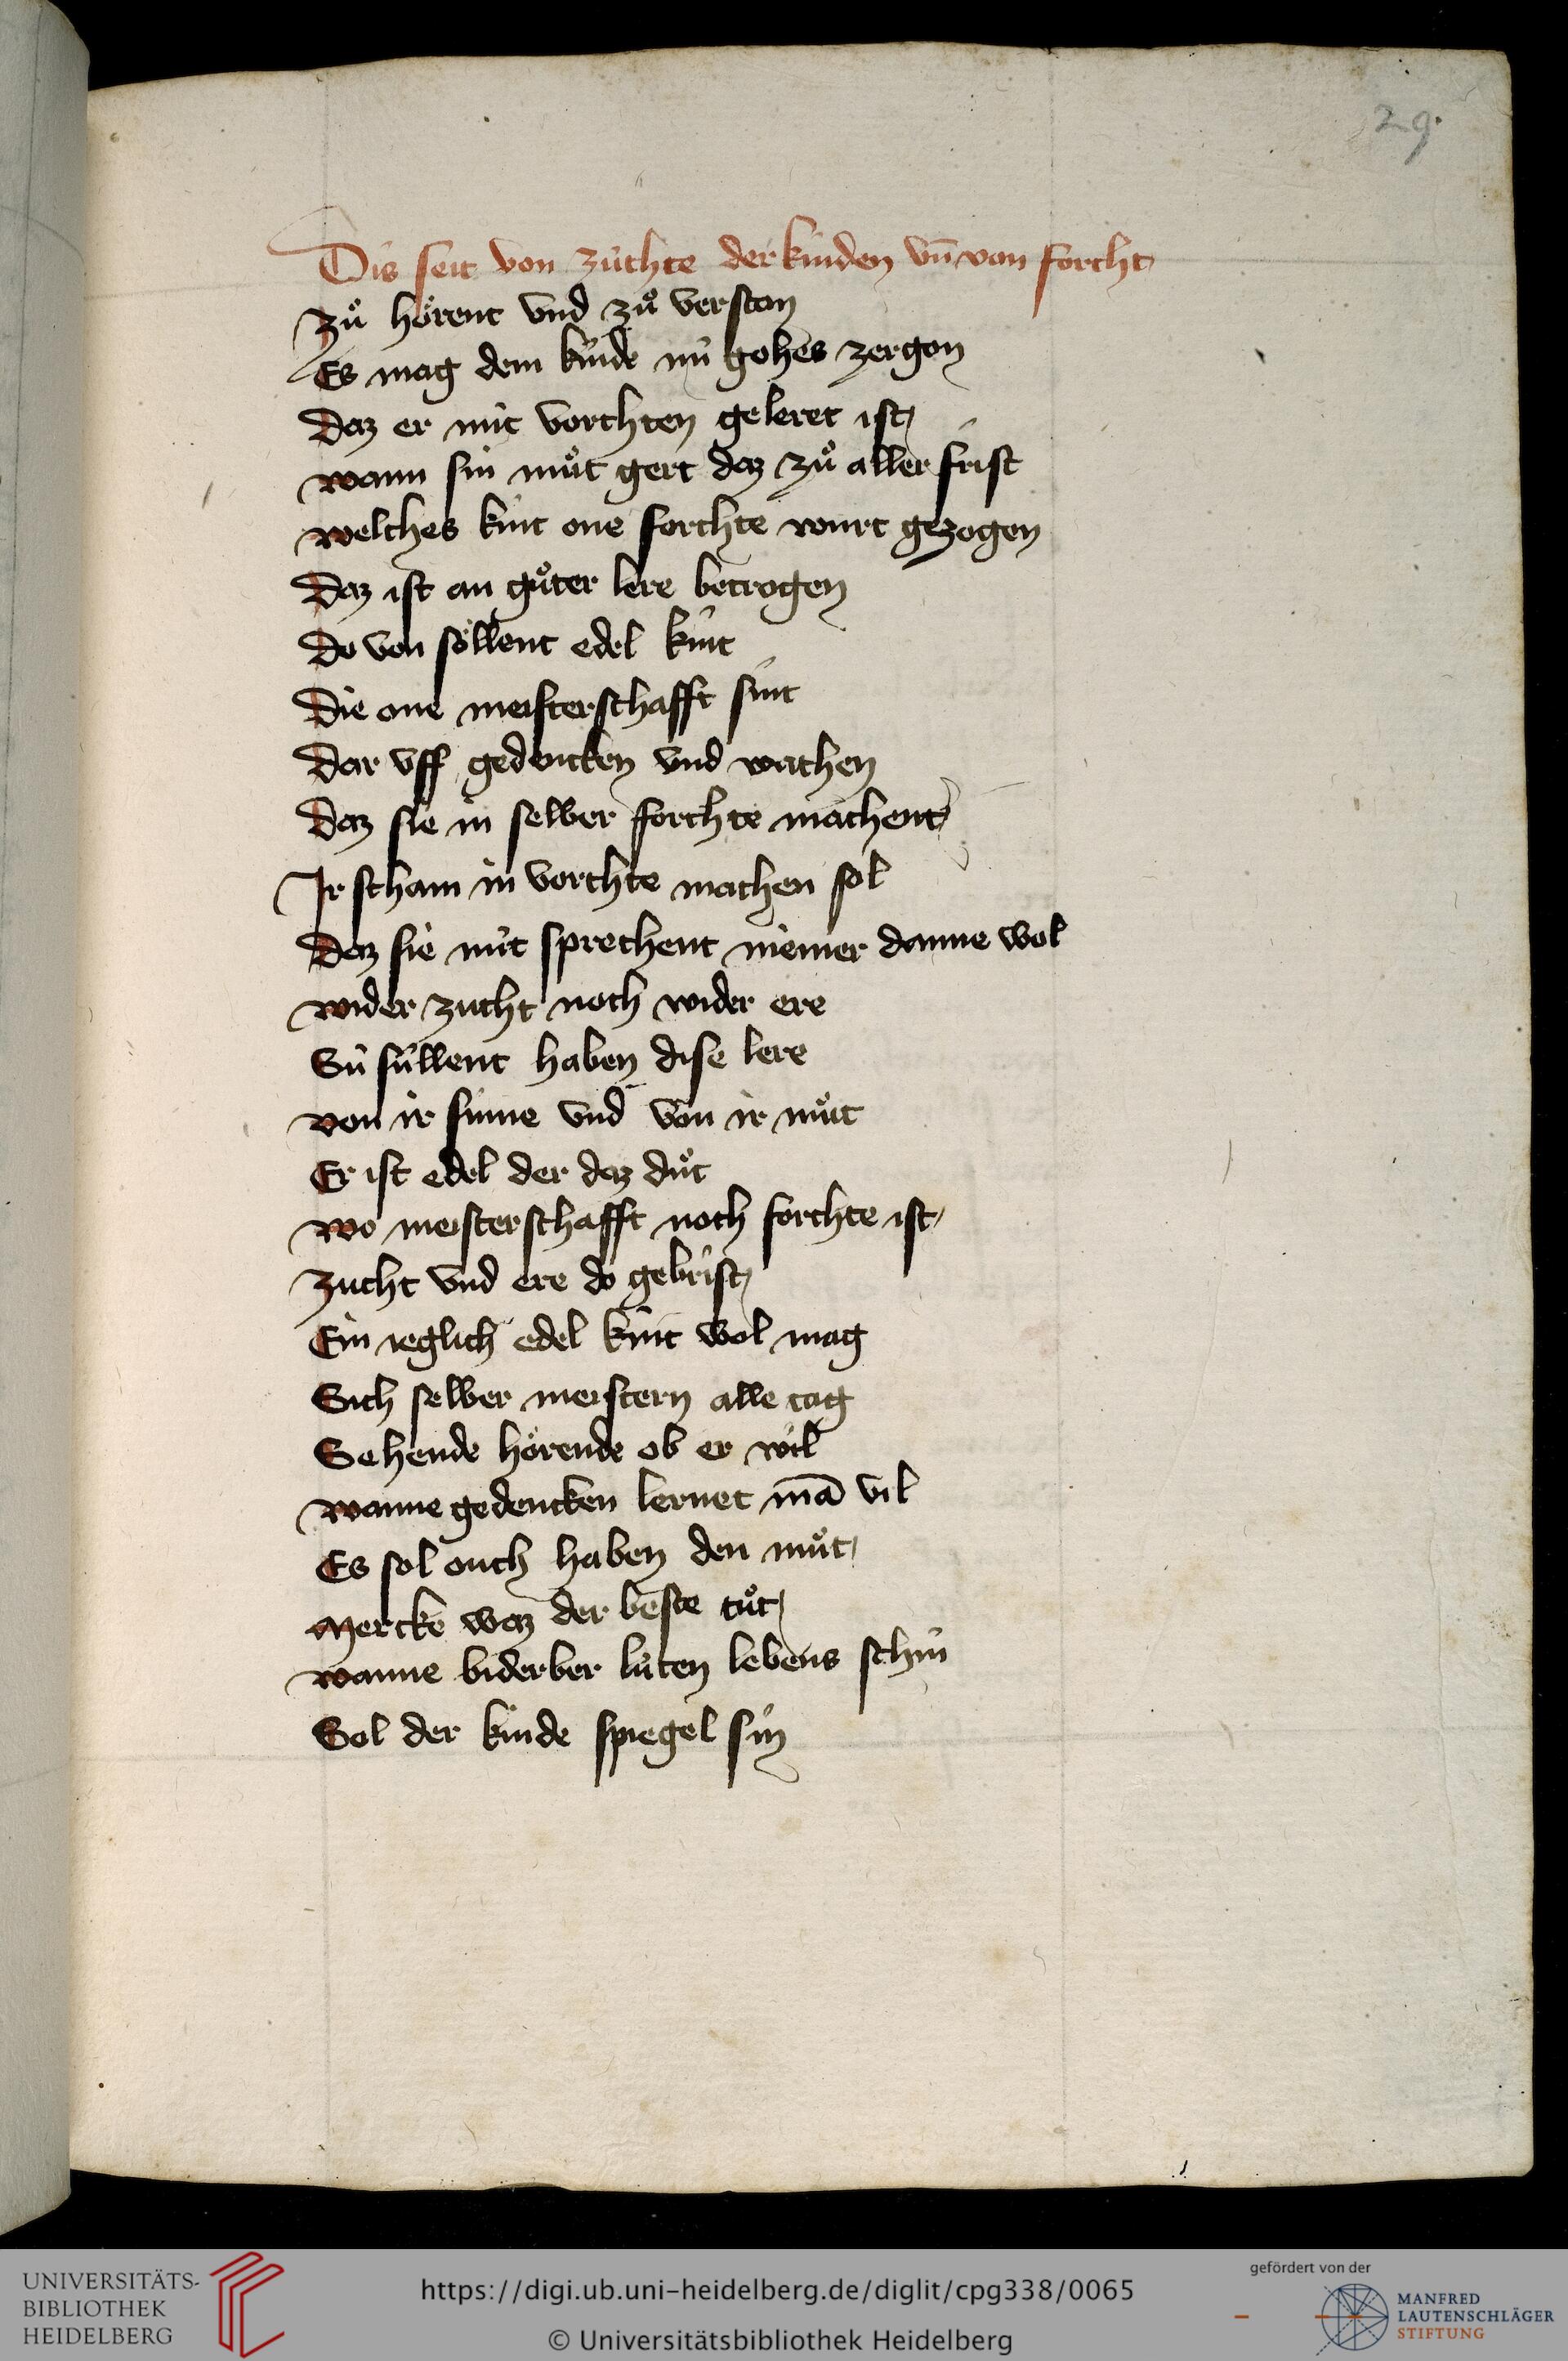 29.
Dis seit von zúchte der kinden vn̄ von forcht
Zů hörent vnd zů verston
Es mag dem kinde nú gohes zergon
Daz er mit vorchten geleret ist
wann sin můt gert daz zů aller frist
welches kint one forchte wurt gezogen
Daz ist an gůter lere betrogen
Do von söllent edel kint
Die one meisterschafft sint
Dar vff gedencken vnd wachen
Daz sie in selber forchte machent
Ir scham in vorchte machen sol
Daz sie nút sprechent niemer danne wol
wider zucht noch wider ere
Sú súllent haben dise lere
von ir sinne vnd von ir můt
Er ist edel der daz důt
wo meisterschafft noch forchte ist
Zucht vnd ere do gebrist
Ein ieglich edel kint wol mag
Sich selber meistern alle tag
Sehende hörende ob er wil
wanne gedencken lernet mā vil
Es sol ouch haben den můt
Mercke waz der beste tůt
wanne biderber lúten lebens schin
Sol der kinde spiegel sin
UNIVERSITÄTS-
BIBLIOTHEK
HEIDELBERG
https://digi.ub.uni-heidelberg.de/diglit/cpg338/0065
© Universitätsbibliothek Heidelberg
gefördert von der
MANFRED
LAUTENSCHLÄGER
STIFTUNG